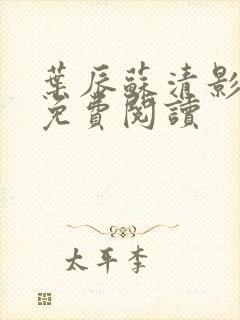 葉辰蘇清影
免費閱讀
太平李